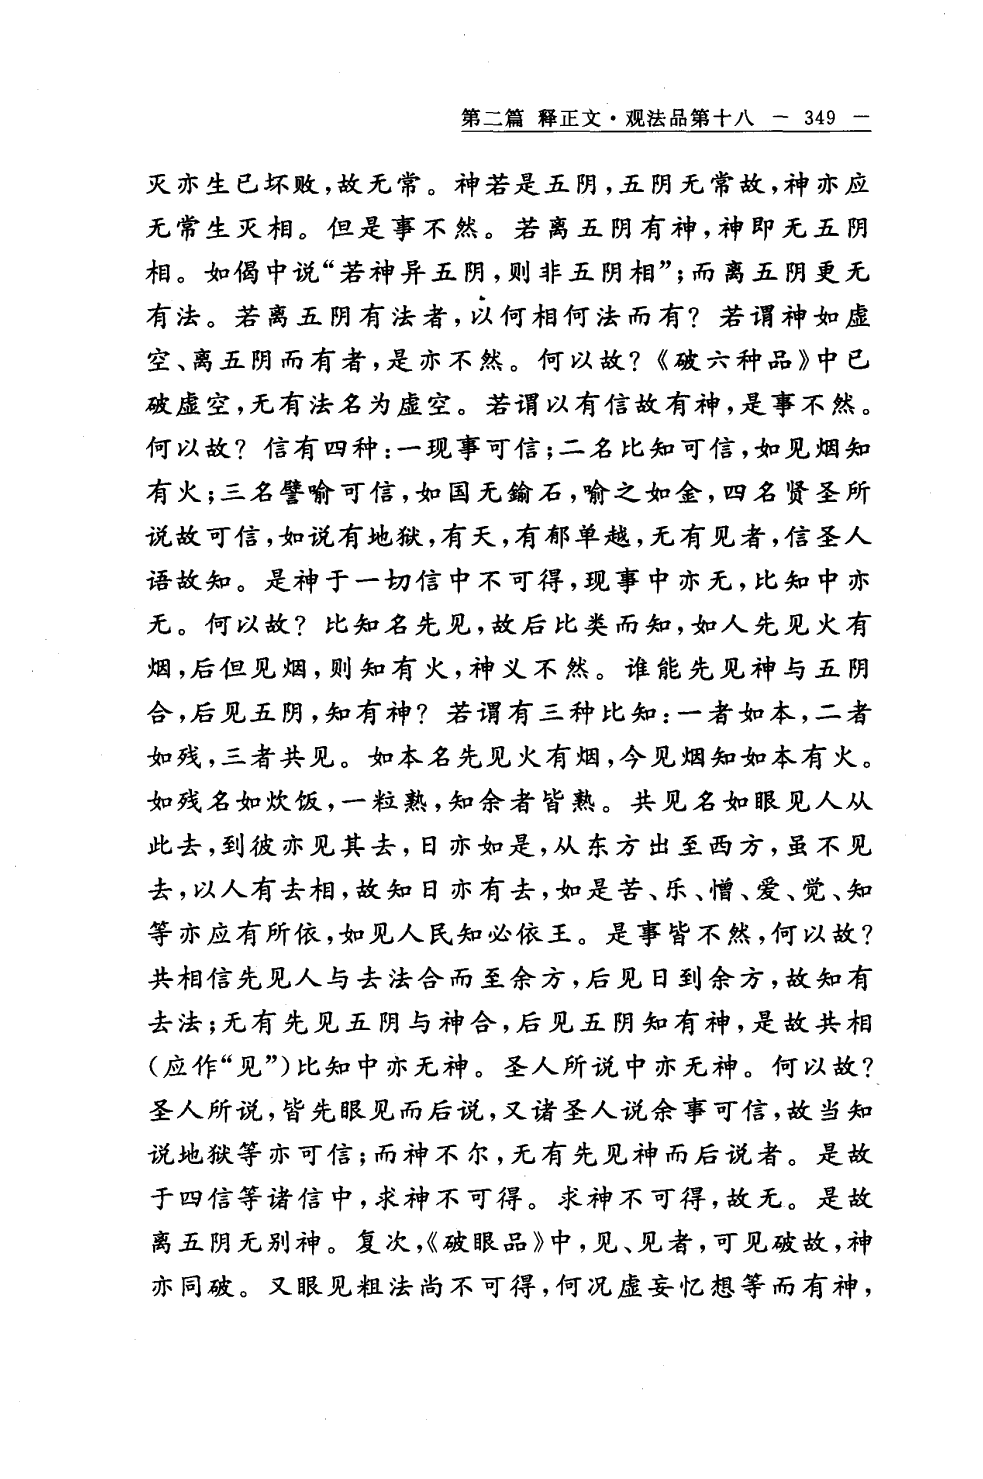 第二篇 释正文·观法品第十八 — 349 —
灭亦生已坏败,故无常。神若是五阴,五阴无常故,神亦应
无常生灭相。但是事不然。若离五阴有神,神即无五阴
相。如偈中说“若神异五阴,则非五阴相”;而离五阴更无
有法。若离五阴有法者,以何相何法而有?若谓神如虚
空、离五阴而有者,是亦不然。何以故?《破六种品》中已
破虚空,无有法名为虚空。若谓以有信故有神,是事不然。
何以故?信有四种:一现事可信;二名比知可信,如见烟知
有火;三名譬喻可信,如国无鍮石,喻之如金,四名贤圣所
说故可信,如说有地狱,有天,有郁单越,无有见者,信圣人
语故知。是神于一切信中不可得,现事中亦无,比知中亦
无。何以故?比知名先见,故后比类而知,如人先见火有
烟,后但见烟,则知有火,神义不然。谁能先见神与五阴
合,后见五阴,知有神?若谓有三种比知:一者如本,二者
如残,三者共见。如本名先见火有烟,今见烟知如本有火。
如残名如炊饭,一粒熟,知余者皆熟。共见名如眼见人从
此去,到彼亦见其去,日亦如是,从东方出至西方,虽不见
去,以人有去相,故知日亦有去,如是苦、乐、憎、爱、觉、知
等亦应有所依,如见人民知必依王。是事皆不然,何以故?
共相信先见人与去法合而至余方,后见日到余方,故知有
去法;无有先见五阴与神合,后见五阴知有神,是故共相
(应作“见”)比知中亦无神。圣人所说中亦无神。何以故?
圣人所说,皆先眼见而后说,又诸圣人说余事可信,故当知
说地狱等亦可信;而神不尔,无有先见神而后说者。是故
于四信等诸信中,求神不可得。求神不可得,故无。是故
离五阴无别神。复次,《破眼品》中,见、见者,可见破故,神
亦同破。又眼见粗法尚不可得,何况虚妄忆想等而有神,